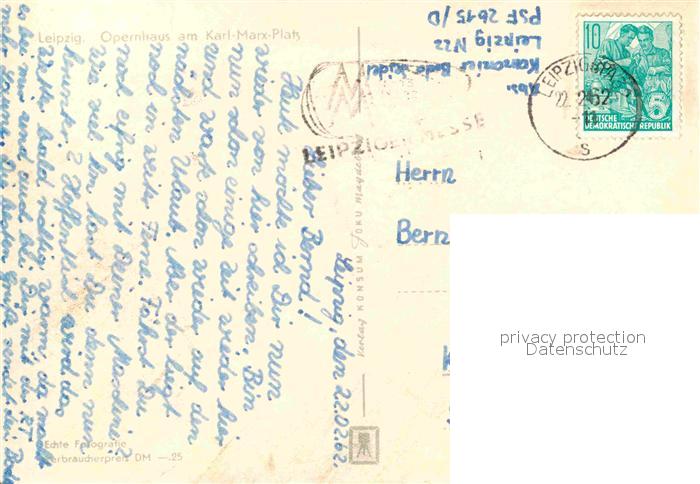 Leipzig. Opernhaus am Karl-Marx-Platz
Abs.
Kanonier
Leipzig N22
PSF 2615/D
10
5
DEUTSCHE
DEMOKRATISCHE REPUBLIK
LEIPZIG
2.62
S
MM
LEIPZIGER MESSE
Herrn
Bern
privacy protection
Datenschutz
Verlag KONSUM FOKU Magdeburg
Leipzig, den 22.02.62.
Lieber Bernd!
Heute möchte ich Dir nun
wieder von hier schreiben. Bin
nun schon einige Zeit wieder hier
und warte schon wieder auf den
nächsten Urlaub. Aber der liegt
noch in weiter Ferne. Fährst Du
noch eifrig mit Deiner Maschine?
wie viel km hast Du denn nun
herunter? Hoffentlich wird das
Wetter bald richtig warm, da macht
es
Echte Fotografie
Verbraucherpreis DM —.25